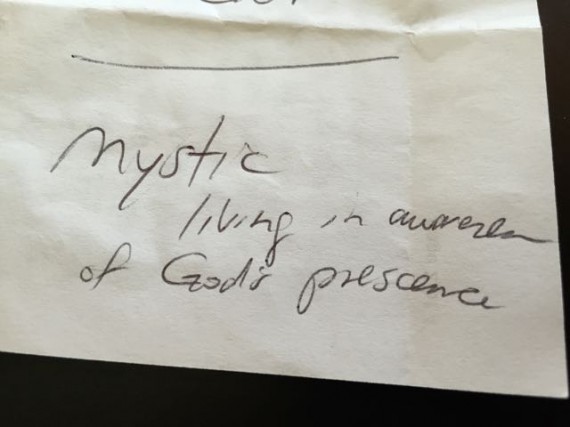 Mystic
living in awareness
of God's prescence